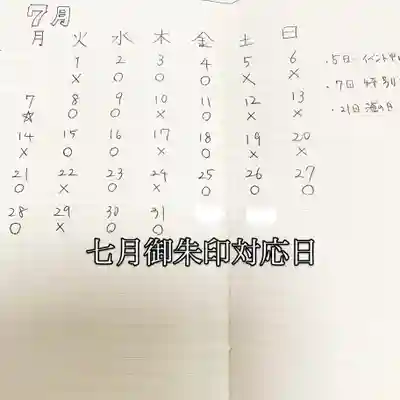 7月
月 火 水 木 金 土 日
1 2 3 4 5 6
× ○ ○ ○ × ×
7 8 9 10 11 12 13
☆ ○ ○ × ○ × ×
14 15 16 17 18 19 20
× ○ ○ × ○ × ×
21 22 23 24 25 26 27
○ × ○ × ○ ○ ○
28 29 30 31
○ × ○ ○
・5日 イベント
・7日 特別
・21日 海の日
七月御朱印対応日